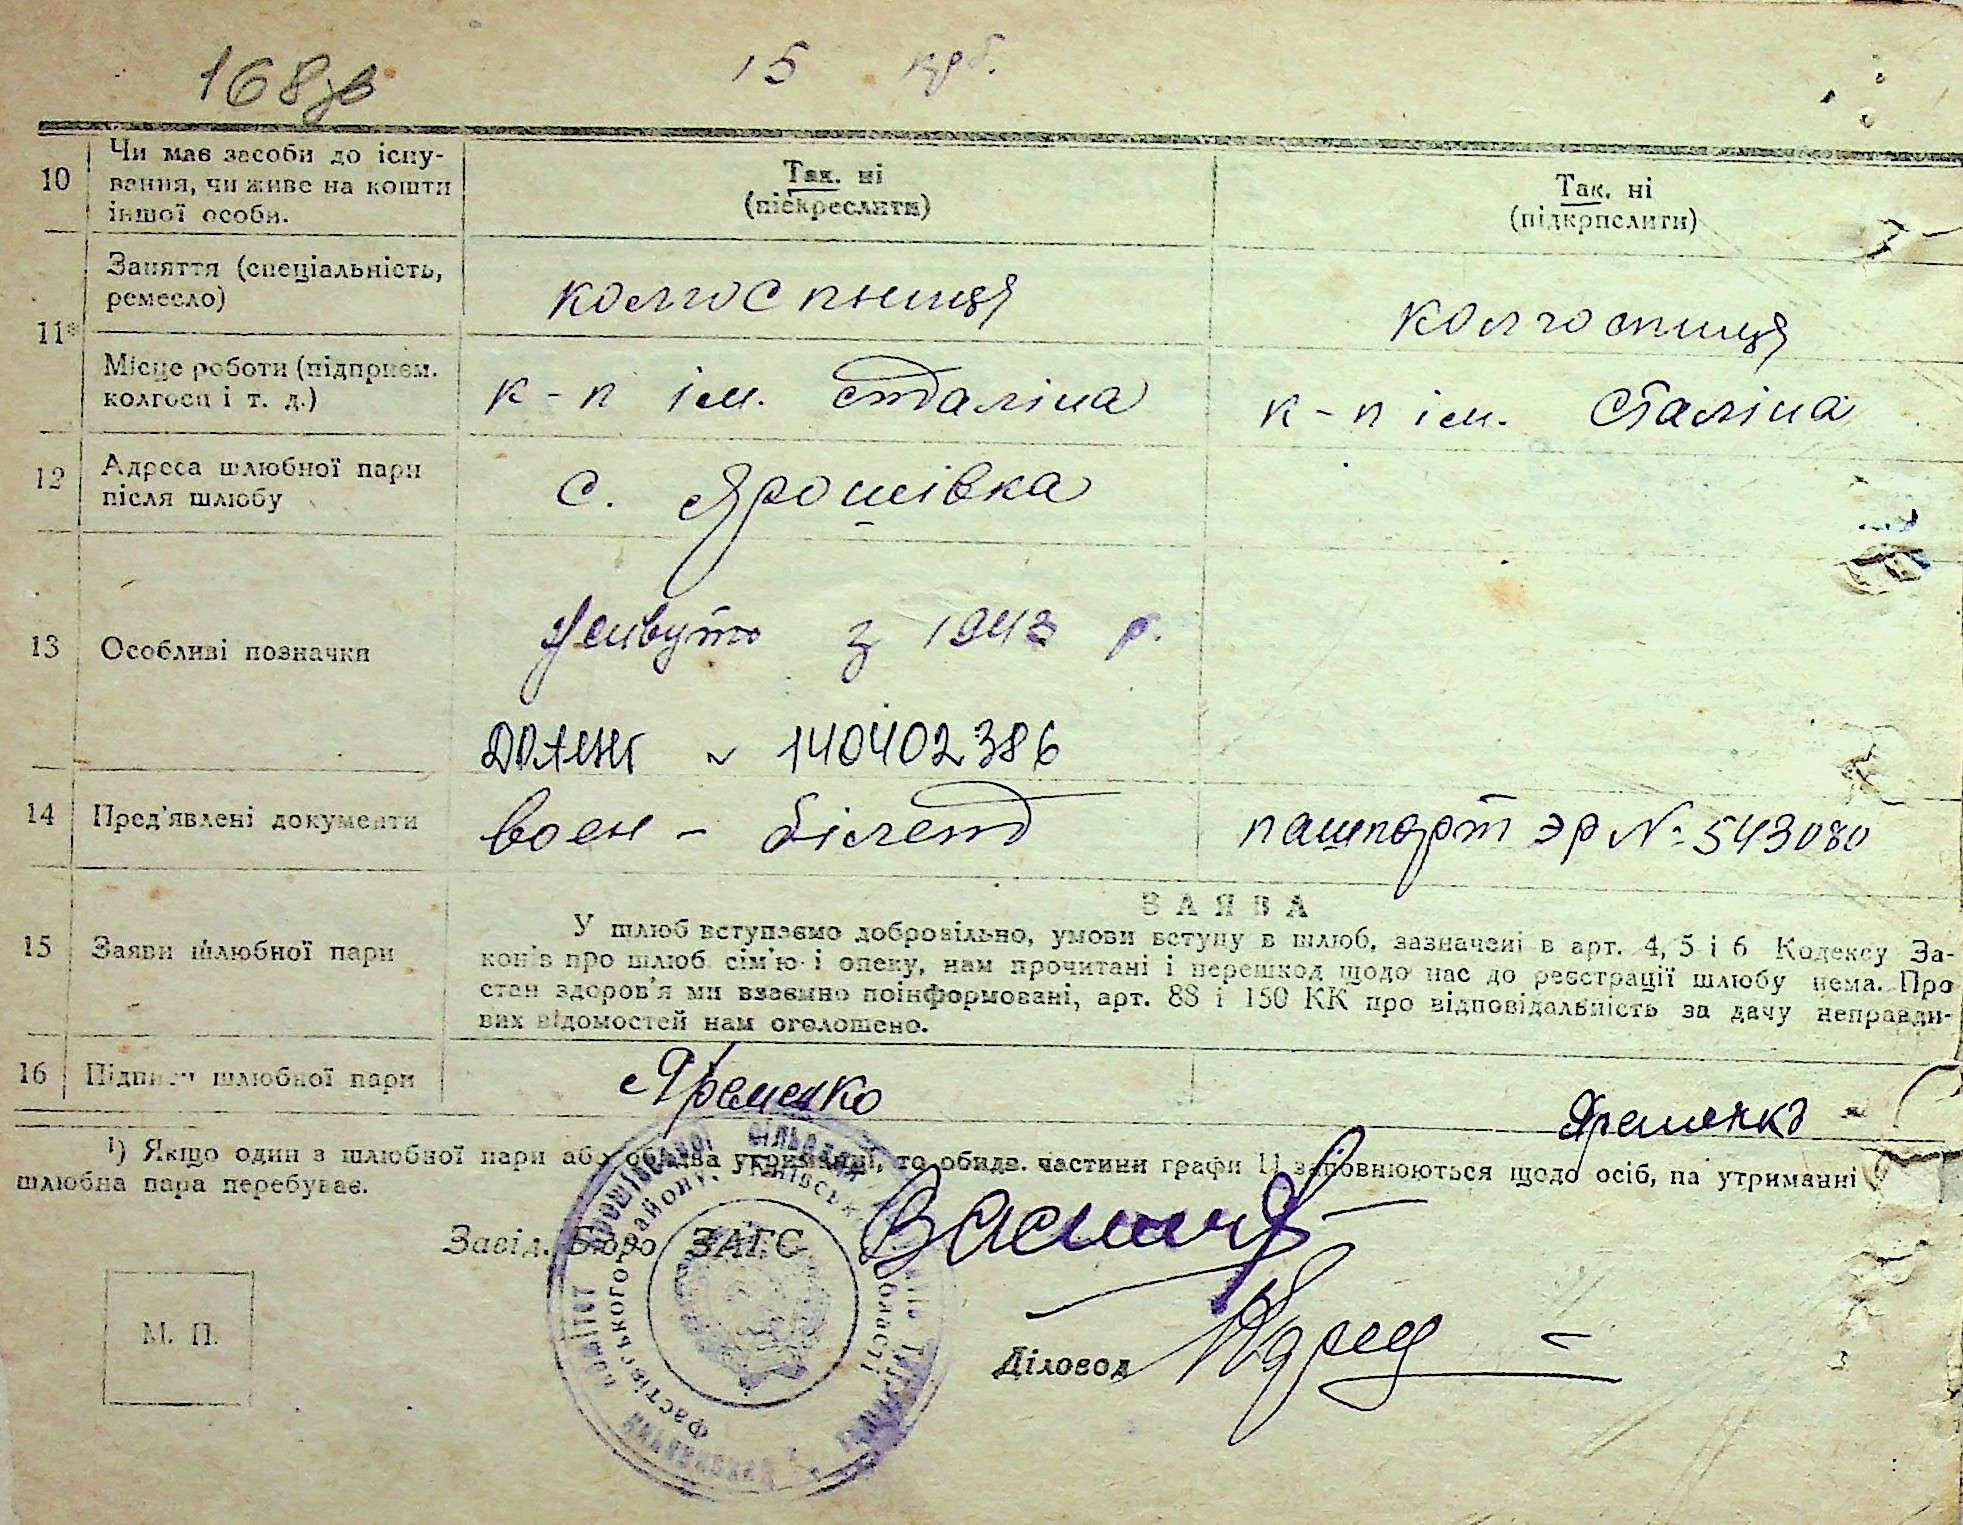 168зв
15 крб.
10 Чи має засоби до існу-
вання, чи живе на кошти
іншої особи.
Так. ні
(підкреслити)
Так. ні
(підкрпслити)
11*
Заняття (спеціальність,
ремесло)
колгоспниця
колгоспниця
Місце роботи (підприєм.
колгосп і т. д.)
к-п ім. Сталіна
к-п ім. Сталіна
12 Адреса шлюбної пари
після шлюбу
с. Ярошівка
13 Особливі позначки
живуть з 1943 р.
№ 140402386
14 Пред'явлені документи
воен - білет
пашпорт ЭР № 543080
15 Заяви шлюбної пари
ЗАЯВА
У шлюб вступаємо добровільно, умови вступу в шлюб, зазначені в арт. 4, 5 і 6 Кодексу За-
конів про шлюб сім'ю і опеку, нам прочитані і перешкод щодо нас до реєстрації шлюбу нема. Про
стан здоров'я ми взаємно поінформовані, арт. 88 і 150 КК про відповідальність за дачу неправди-
вих відомостей нам оголошено.
16 Підписи шлюбної пари
Яременко
Яременко
1) Якщо один з шлюбної пари або обидва утриманці, то обидв. частини графи 11 заповнюються щодо осіб, на утриманні
шлюбна пара перебуває.
Завід. Бюро ЗАГС
М. П.
Діловод
виконавчий комітет Ярошівської сільради
Фастівського району, Київської області